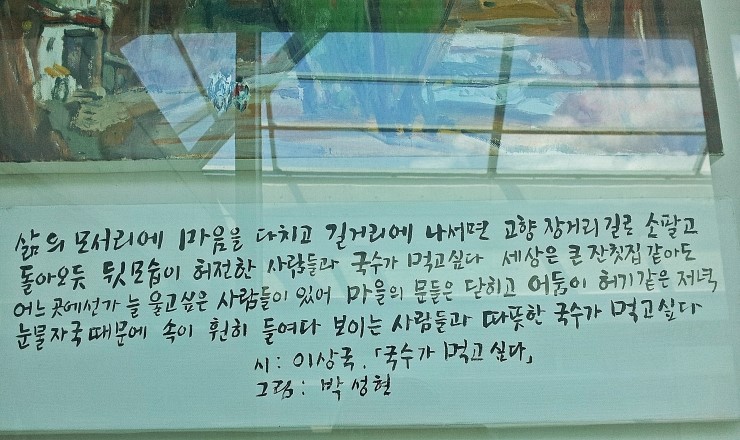 삶의 모서리에 마음을 다치고 길거리에 나서면 고향 장거리 길로 소팔고
돌아오듯 뒷모습이 허전한 사람들과 국수가 먹고싶다 세상은 큰 잔칫집 같아도
어느 곳에선가 늘 울고싶은 사람들이 있어 마을의 문들은 닫히고 어둠이 허기 같은 저녁
눈물자국 때문에 속이 훤히 들여다 보이는 사람들과 따뜻한 국수가 먹고싶다
시 : 이상국. 「국수가 먹고 싶다」
그림 : 박성현